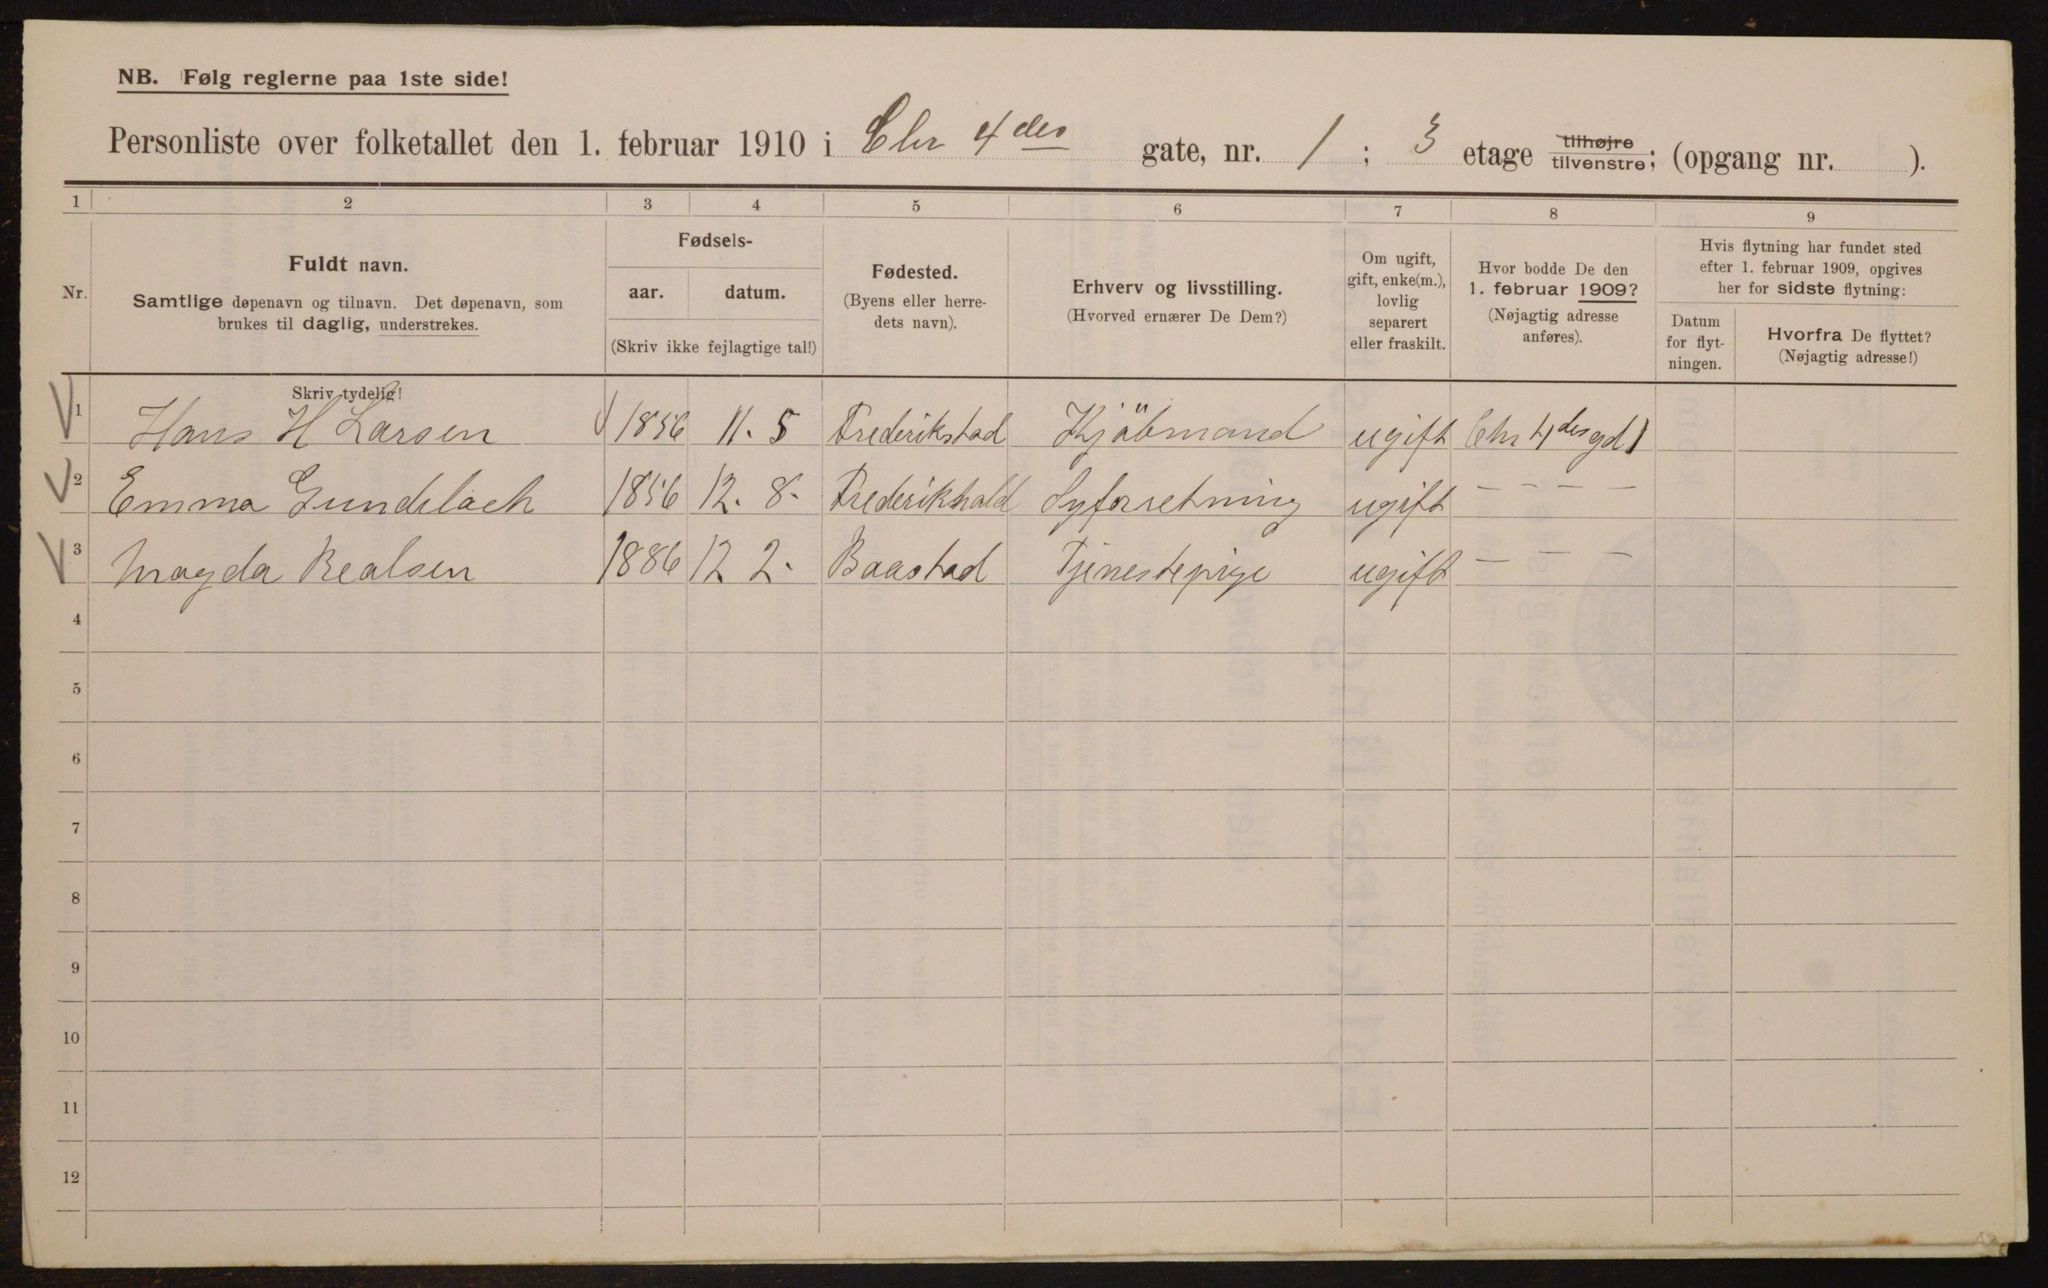 NB. Følg reglerne paa 1ste side!
Personliste over folketallet den 1. februar 1910 i Chr 4des gate, nr. 1 ; 3 etage tilhøjre tilvenstre; (opgang nr. ).
1 2 3 4 5 6 7 8 9
Nr.
Fuldt navn.
Samtlige døpenavn og tilnavn. Det døpenavn, som
brukes til daglig, understrekes.
Fødsels-
aar. datum.
(Skriv ikke fejlagtige tal!)
Fødested.
(Byens eller herre-
dets navn).
Erhverv og livsstilling.
(Hvorved ernærer De Dem?)
Om ugift,
gift, enke(m.),
lovlig
separert
eller fraskilt.
Hvor bodde De den
1. februar 1909?
(Nøjagtig adresse
anføres).
Hvis flytning har fundet sted
efter 1. februar 1909, opgives
her for sidste flytning:
Datum
for flyt-
ningen.
Hvorfra De flyttet?
(Nøjagtig adresse!)
Skriv tydelig!
1 Hans H Larsen 1856 11. 5 Frederikstad Kjöbmand ugift Chr 4des gd 1
2 Emma Gundelach 1856 12. 8. Frederikhald Syforretning ugift – – – –
3 Magda Bealsen 1886 12 2. Baastad Tjenestepige ugift – – –
4
5
6
7
8
9
10
11
12